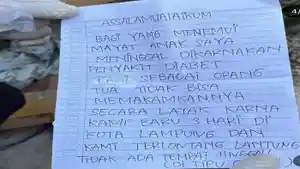 ASSALAMUALAIKUM
BAGI YANG MENEMUI
MAYAT ANAK SAYA
MENINGGAL DIKARNAKAN
PENYAKIT DIABET
SEBAGAI ORANG
TUA TIDAK BISA
MEMAKAMKANNYA
SECARA LAYAK KARNA
KAMI BARU 3 HARI DI
KOTA LAMPUNG DAN
KAMI TERLONTANG LANTUNG
TIDAK ADA TEMPAT TINGGAL
DI TIPU